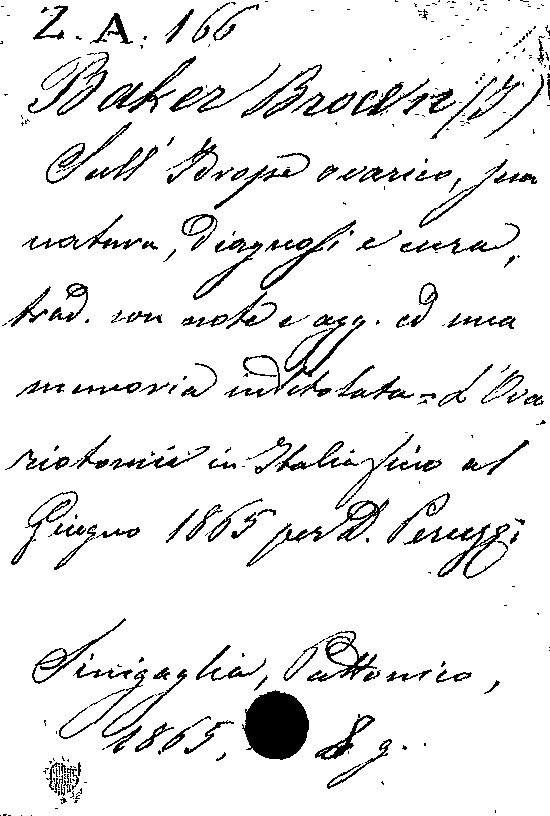 Z. A. 166
Baker Brown (J)
Sull' Idrope ovarico, sua
natura, diagnosi e cura,
trad. con note e agg. ed una
memoria intitolata = L'Ova
riotomia in Italia fino al
Giugno 1865 per D. Peruzzi
Sinigaglia, Pattonico,
1865. 8 g.